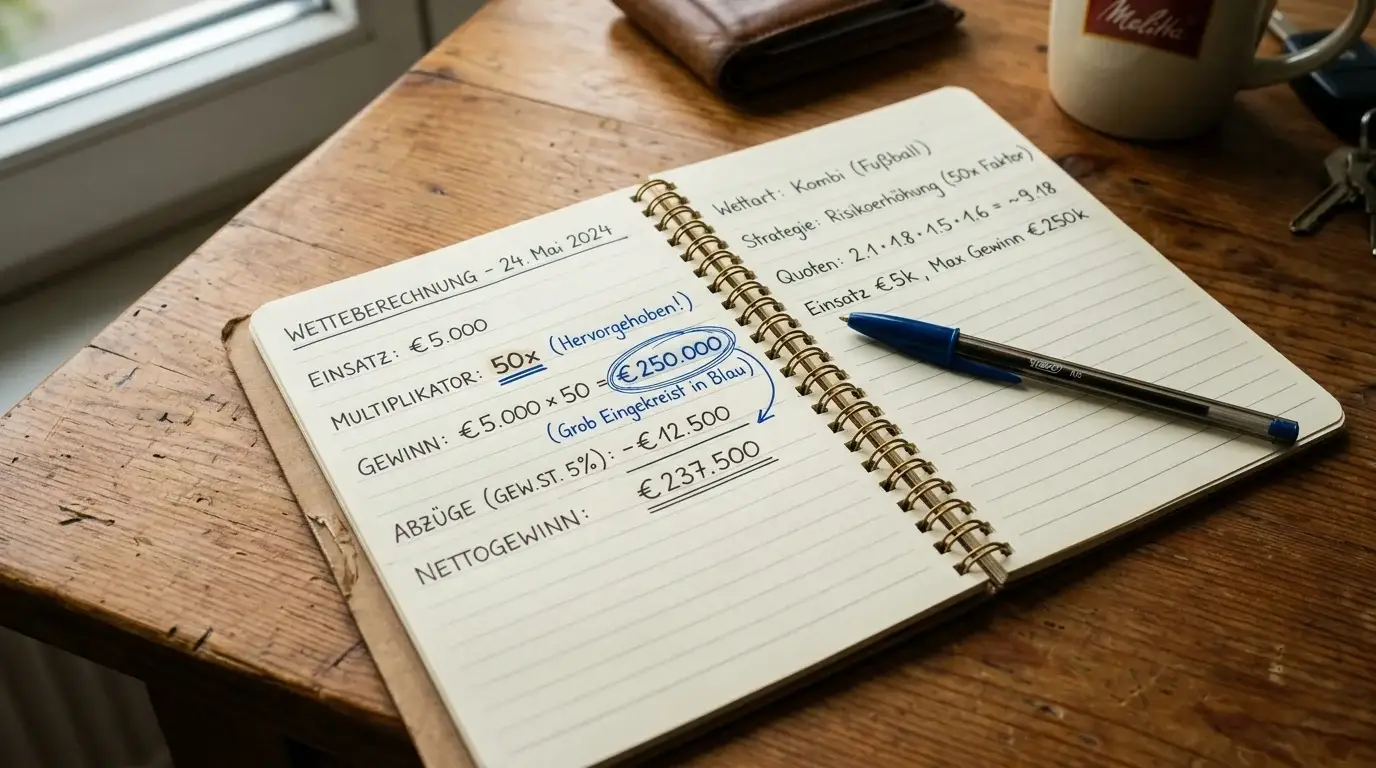 WETTEBERECHNUNG – 24. Mai 2024
EINSATZ: €5.000
MULTIPLIKATOR: 50x (Hervorgehoben!)
GEWINN: €5.000 × 50 = €250.000
(Grob Eingekreist in Blau)
ABZÜGE (GEW.ST. 5%): -€12.500
NETTOGEWINN: €237.500
Wettart: Kombi (Fußball)
Strategie: Risikoerhöhung (50x Faktor)
Quoten: 2.1 · 1.8 · 1.5 · 1.6 = ~9.18
Einsatz €5k, Max Gewinn €250k
Melitta